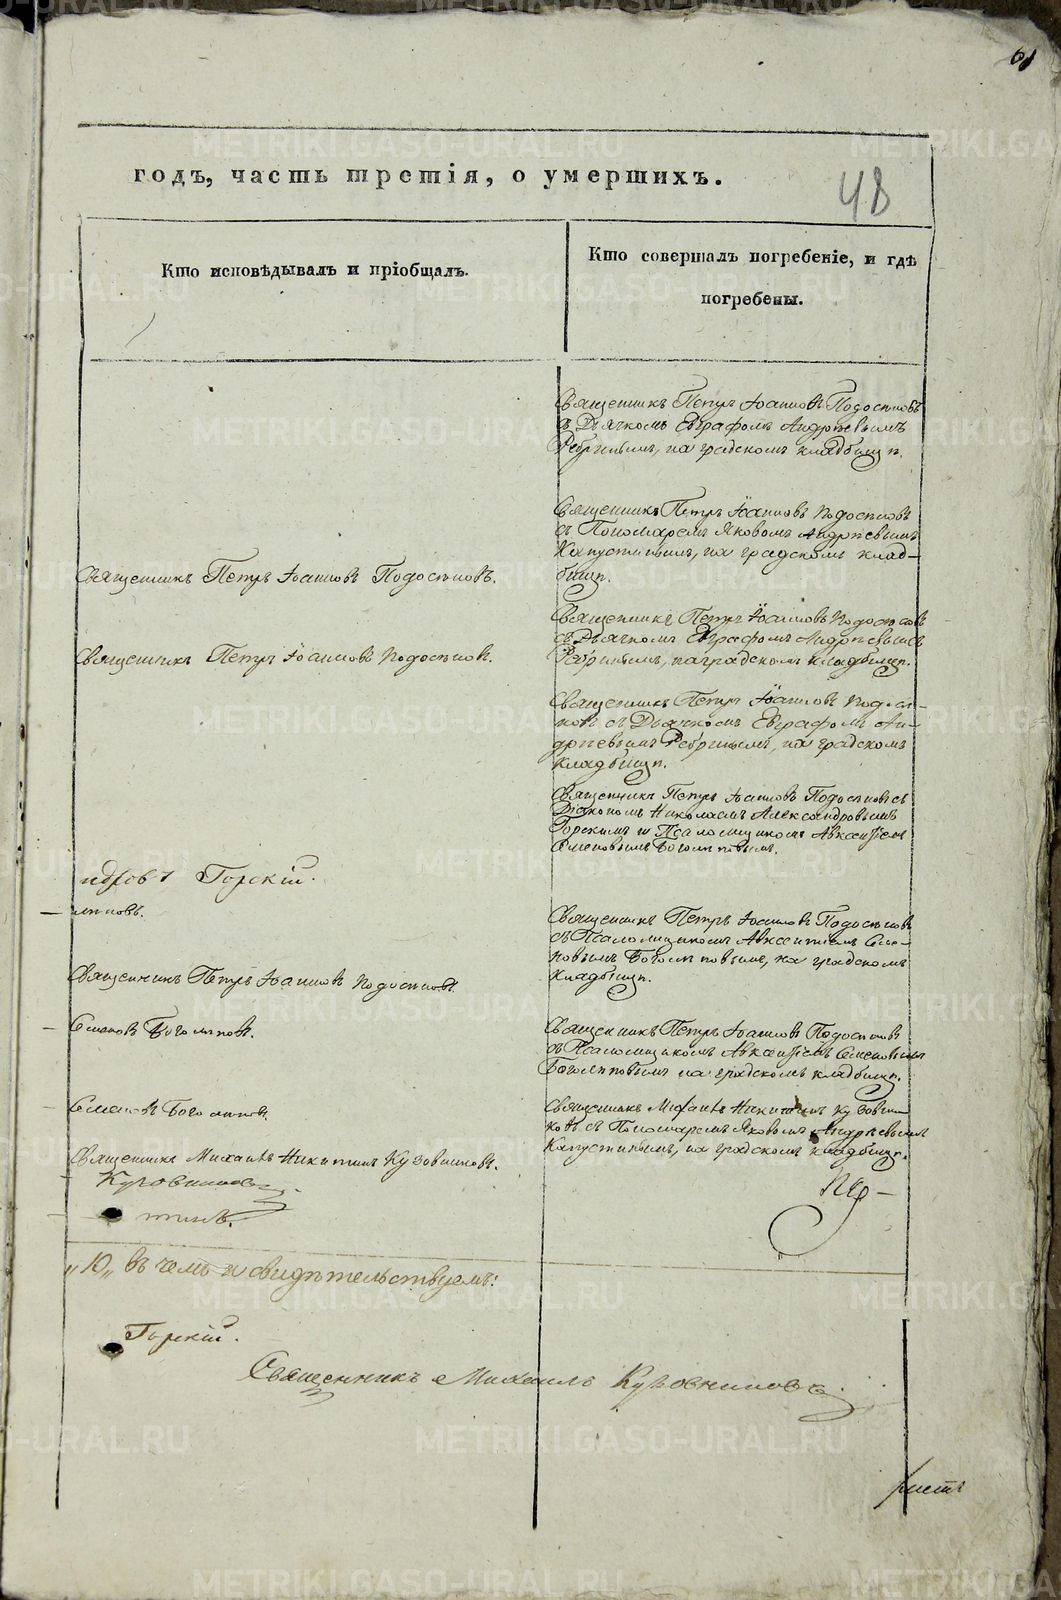 61
годъ, часть третія, о умершихъ.
48
Кто исповѣдывалъ и пріобщалъ.
Кто совершалъ погребеніе, и гдѣ
погребены.
Священникъ Петръ Іоанновъ Подосеновъ
съ Дьячкомъ Евграфомъ Андреевымъ
Ребринымъ, на градскомъ кладбищѣ.
Священникъ Петръ Іоанновъ Подосеновъ
съ Пономаремъ Яковомъ Андреевымъ
Капустинымъ, на градскомъ клад-
бищѣ.
Священникъ Петръ Іоанновъ Подосеновъ.
Священникъ Петръ Іоанновъ Подосеновъ
съ Дьячкомъ Евграфомъ Андреевымъ
Ребринымъ, на градскомъ кладбищѣ.
Священникъ Петръ Іоанновъ Подосеновъ.
Священникъ Петръ Іоанновъ Подосе-
новъ съ Дьячкомъ Евграфомъ Ан-
дреевымъ Ребринымъ, на градскомъ
кладбищѣ.
Священникъ Петръ Іоанновъ Подосеновъ съ
Діакономъ Николаемъ Александровымъ
Горскимъ и Псаломщикомъ Авксентіемъ
Семеновымъ Боголеповымъ.
ндровъ Горскій.
леповъ.
Священникъ Петръ Іоанновъ Подосеновъ
съ Псаломщикомъ Авксентіемъ Семе-
новымъ Боголеповымъ, на градскомъ
кладбищѣ.
Священникъ Петръ Іоанновъ Подосеновъ.
Семеновъ Боголеповъ.
Священникъ Петръ Іоанновъ Подосеновъ
съ Псаломщикомъ Авксентіемъ Семеновымъ
Боголеповымъ на градскомъ кладбищѣ.
Семеновъ Боголеповъ.
Священникъ Михаилъ Никитинъ Кузовни-
ковъ съ Пономаремъ Яковомъ Андреевымъ
Капустинымъ, на градскомъ кладбищѣ.
Священникъ Михаилъ Никитинъ Кузовниковъ.
Кузовниковъ
тинъ.
„10„ въ чемъ и свидѣтельствуемъ:
Горскій.
Священникъ Михаилъ Кузовниковъ.
листъ